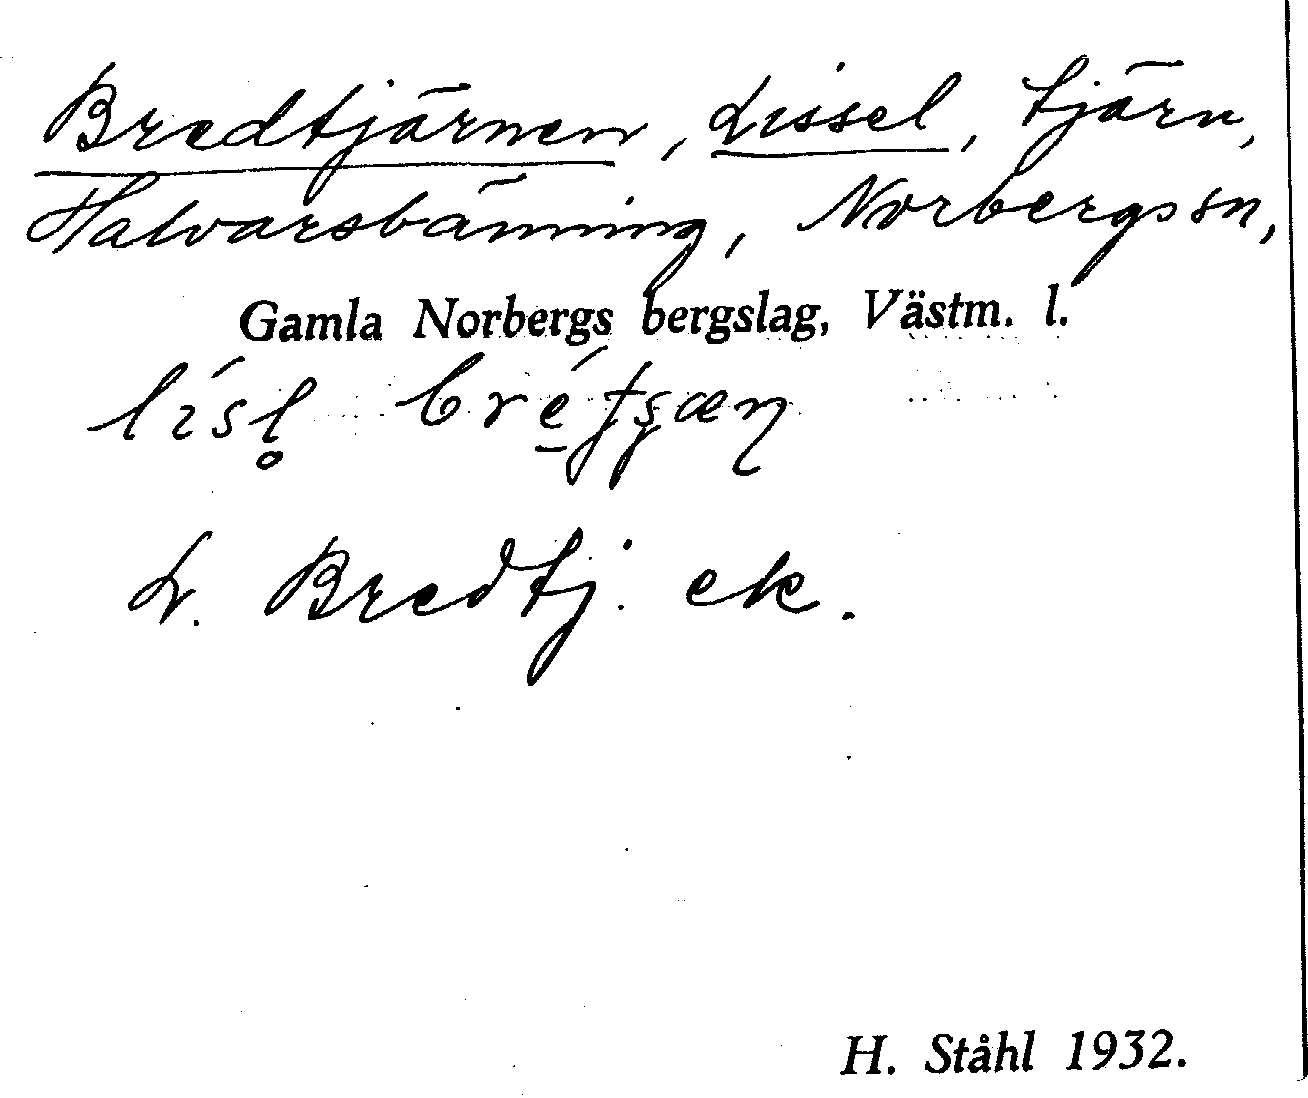 Bredtjärnen, Lissel, tjärn,
Halvarsbänning, Norbergs sn,
Gamla Norbergs bergslag, Västm. l.
L. Bredtj. ek.
H. Ståhl 1932.